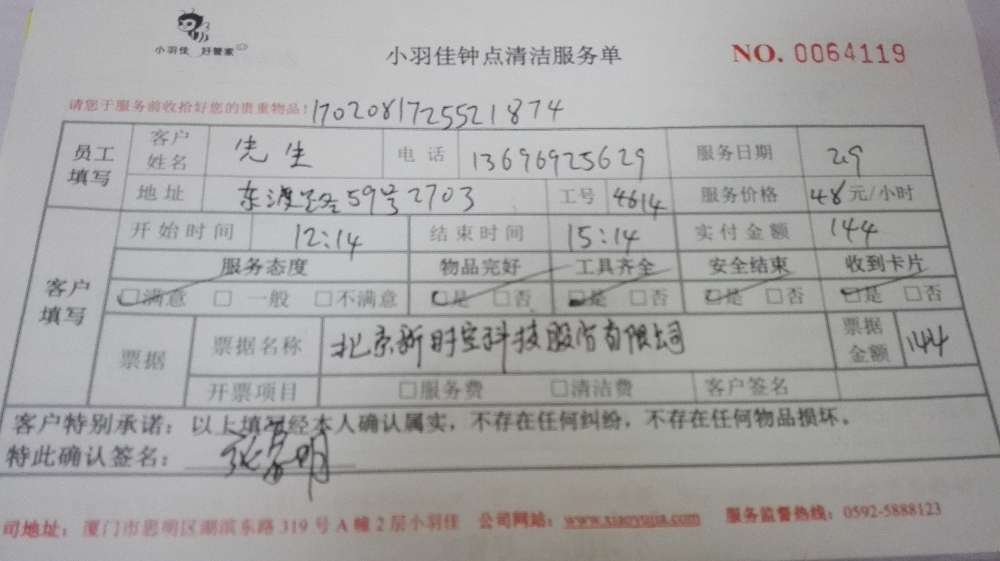 小羽佳 好管家
小羽佳钟点清洁服务单
NO. 0064119
请您于服务前收拾好您的贵重物品! 170208172552 1874
员工填写 客户姓名 先生 电话 13696925629 服务日期 29
地址 东渡路59号2703 工号 4614 服务价格 48元/小时
客户填写 开始时间 12:14 结束时间 15:14 实付金额 144
服务态度 物品完好 工具齐全 安全结束 收到卡片
□满意 □一般 □不满意 □是 □否 □是 □否 □是 □否 □是 □否
票据 票据名称 北京新时空科技股份有限公司 票据金额 144
开票项目 □服务费 □清洁费 客户签名
客户特别承诺：以上填写经本人确认属实，不存在任何纠纷，不存在任何物品损坏。
特此确认签名：
司地址：厦门市思明区湖滨东路 319 号 A 幢 2 层小羽佳 公司网站：www.xiaoyujia.com 服务监督热线：0592-5888123